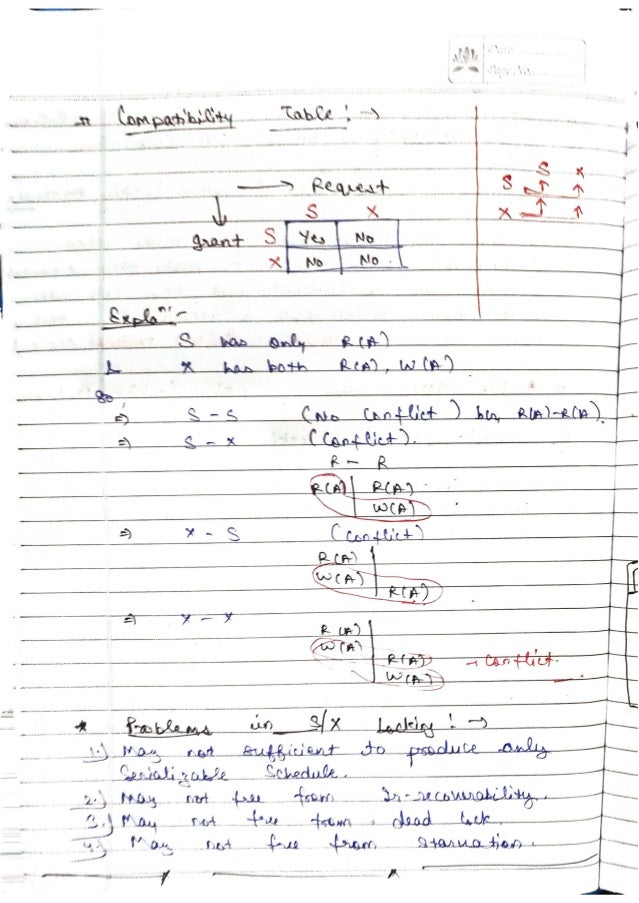 Date
Page No.
* Compatibility Table : →
→ Request
S X
grant S Yes No
X No No.
S X
S ↑ ↑
X ↑ ↑
Explan :-
S has only R(A)
& X has both R(A), W(A)
So,
⇒ S - S (No Conflict) b/c, R(A)-R(A).
⇒ S - X (Conflict).
R - R
R(A) R(A)
W(A)
⇒ X - S (Conflict)
R(A)
W(A)
R(A)
⇒ X - X
R(A)
W(A)
R(A) → Conflict.
W(A)
* Problems in S/X Locking : →
1.) May not sufficient to produce only
Serializable Schedule.
2.) May not free from Ir-recoverability.
3.) May not free from dead lock.
4.) May not free from starvation.